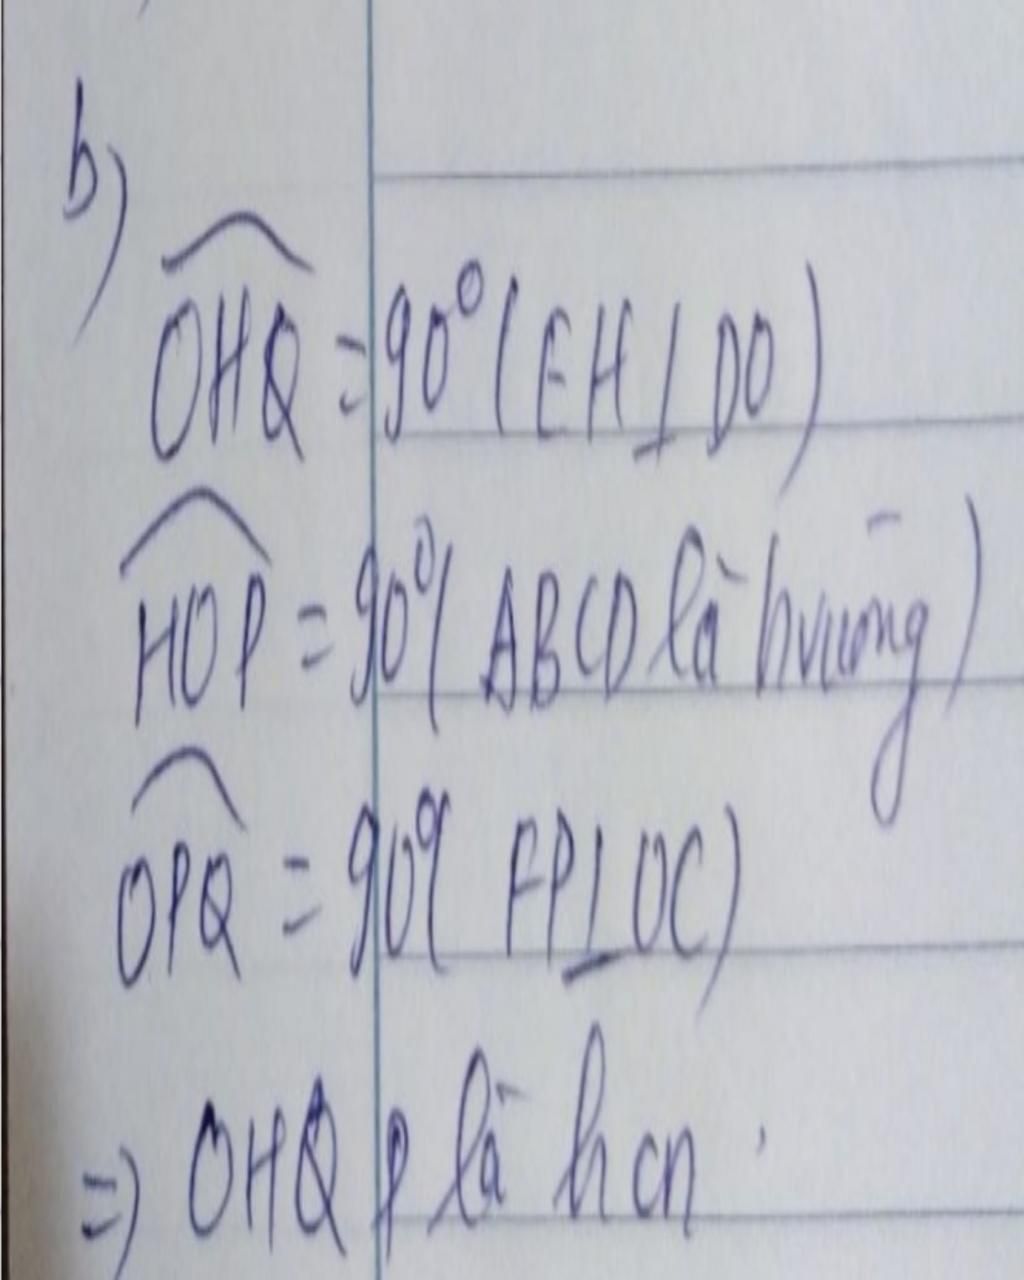 b)
OHQ = 90° (EH ⊥ DO)
HOP = 90° (ABCD là hvuōng)
OPQ = 90° (FP ⊥ OC)
=) OHQP là hcn.